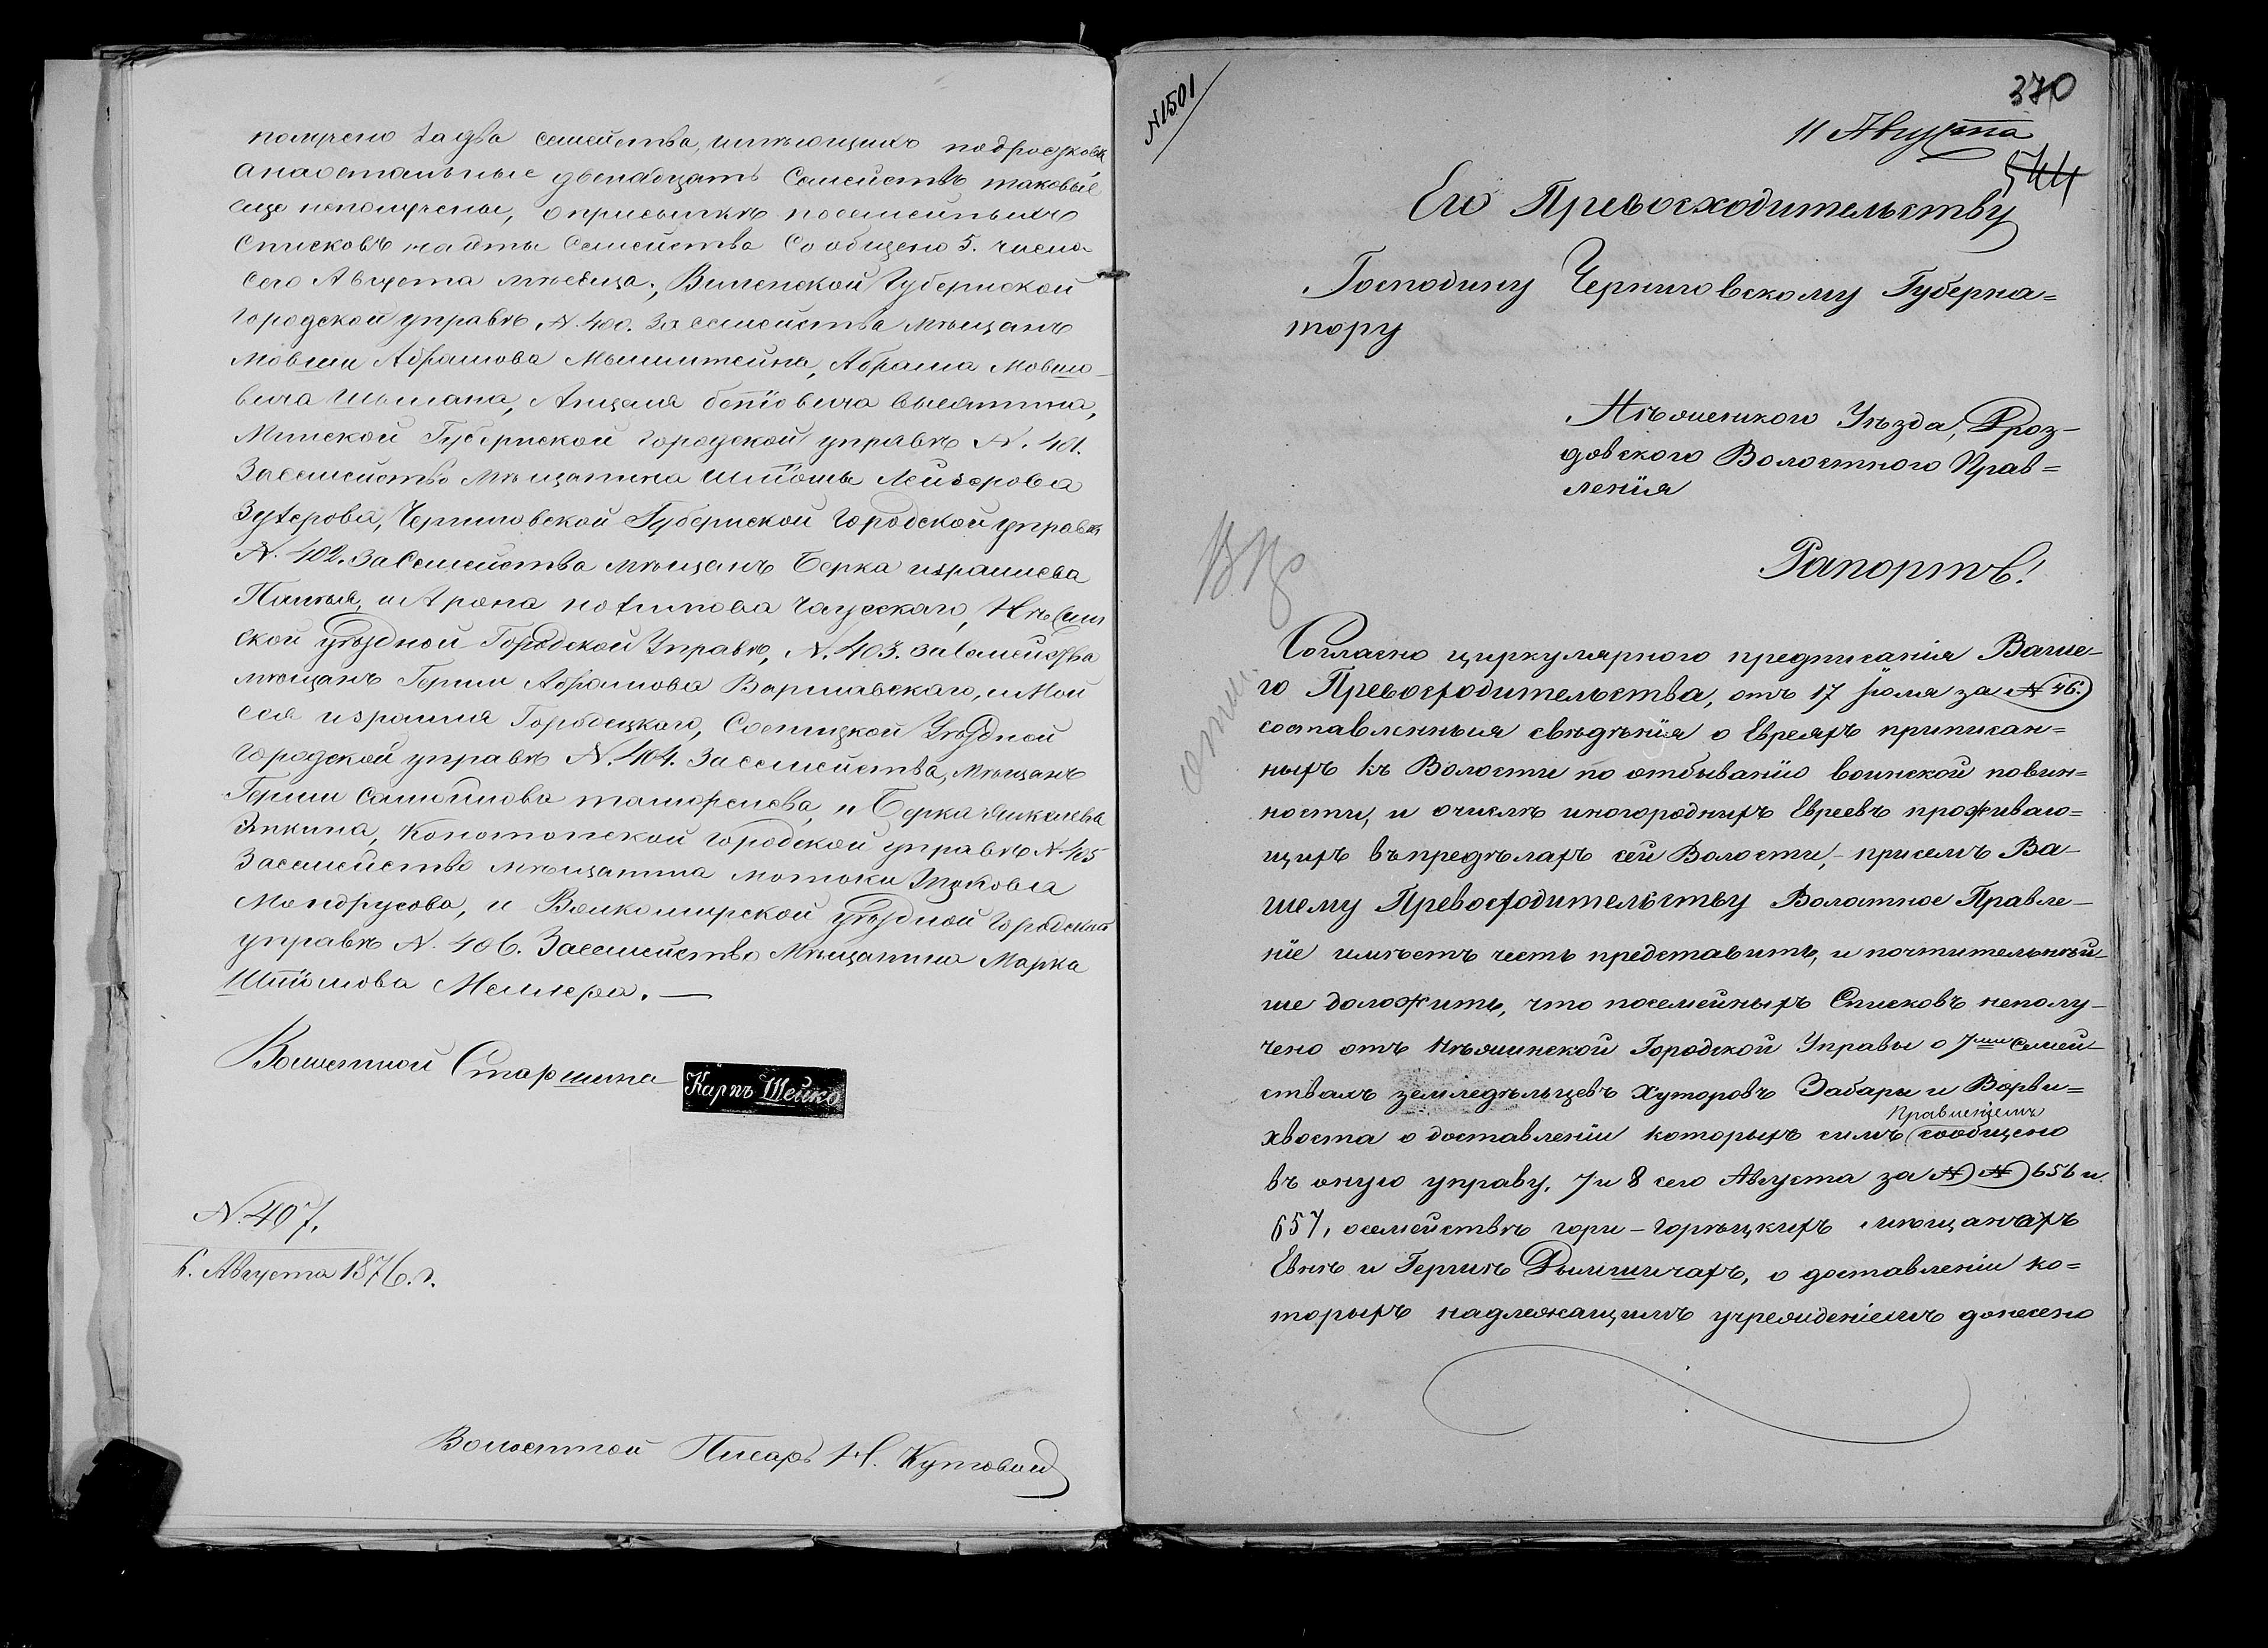 получено за два семейства, имѣющихъ подростковъ
а на остальные двенадцать Семействъ таковые
еще не получены, о присылкѣ посемейныхъ
Списковъ на эты Семейства Сообщено 5. числа
сего Августа месяца; Виленской Губернской
Городской управѣ N. 400. За семейства мѣщанъ
Мовши Абрамова Абрама Мовшо-
вича Шымана,
Минской Губернской Городской управѣ N. 401.
За семейство мѣщанина Лейзерова
Черниговской Губернской Городской управѣ
N. 402. За Семейства мѣщанъ Берка израилева
и Арона Чаусскаго, Нѣжин
ской уѣздной Городской Управѣ, N. 403. за Семейства
мѣщанъ Герши Абрамова Варшавскаго, и Мой
сея израиля Городецкаго, Сосницкой Уѣздной
городской управѣ N. 404. За семейства, мѣщанъ
Герши Самойлова и Берка
Элкина, Конотопской городской управѣ N. 405
За семейство мѣщанина Мотьки Ицкова
Мандрусова, и Вилкомирской уѣздной Городской
управѣ N. 406. За семейство Мѣщанина Марка
Шліомова Меллера. —
Волостной Старшина Карпъ Шейко
N. 407.
6. Августа 1876. г.
Волостной Писарь Н. Кутовой
N 1501
370
11 Августа
544
Его Превосходительству
Господину Черниговскому Губерна=
тору
Нѣжинскаго Уѣзда, Дроз-
довскаго Волостного Прав=
ленія
Рапортъ!
Согласно циркулярного предписанія Ваше-
го Превосходительства, отъ 17 Іюля за N 46.
составленныя свѣдѣнія о Евреяхъ приписан=
ныхъ къ Волости по отбыванію воинской повин=
ности, и очислѣ иногороднихъ Евреевъ проживаю=
щихъ въ предѣлахъ сей Волости, - при семъ Ва-
шему Превосходительству Волостное Правле-
ніе имѣетъ честь представить, и почтительнѣй-
ше доложить, что посемейныхъ Списковъ неполу-
чено отъ Нѣжинской Городской Управы о 7ми семей-
ствахъ земледѣльцевъ Хуторовъ Забары и Ворви=
хвоста о доставленіи которыхъ симъ Правленіемъ сообщено
въ оную управу, 7 и 8 сего Августа за N N 656 и
657, о семействѣ гори-горѣцкихъ мѣщанахъ
Евнѣ и Гершнѣ Дымшичахъ, о доставленіи ко=
торыхъ надлежащимъ учрежденіемъ донесено